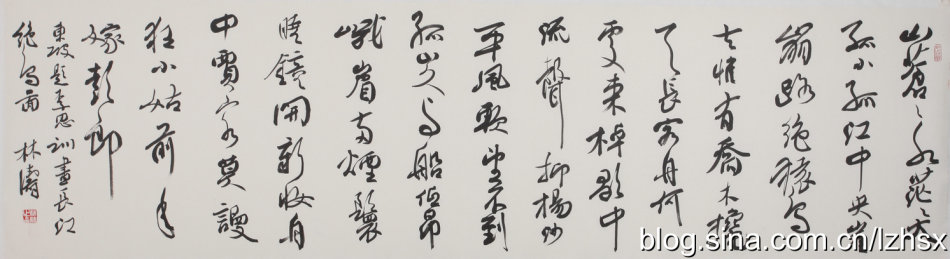 山蒼〻水茫〻大
孤小孤江中央崖
崩路絕猿鳥
去惟有喬木攙
天長客舟何
處來棹歌中
流聲抑楊沙
平風軟望不到
孤山久与船低昂
峨眉兩煙鬟
曉鏡開新妝舟
中賈客莫謾
狂小姑前年
嫁彭郎
東坡題李思訓畫長江
絕島圖 林濤
blog.sina.com.cn/lzhsx